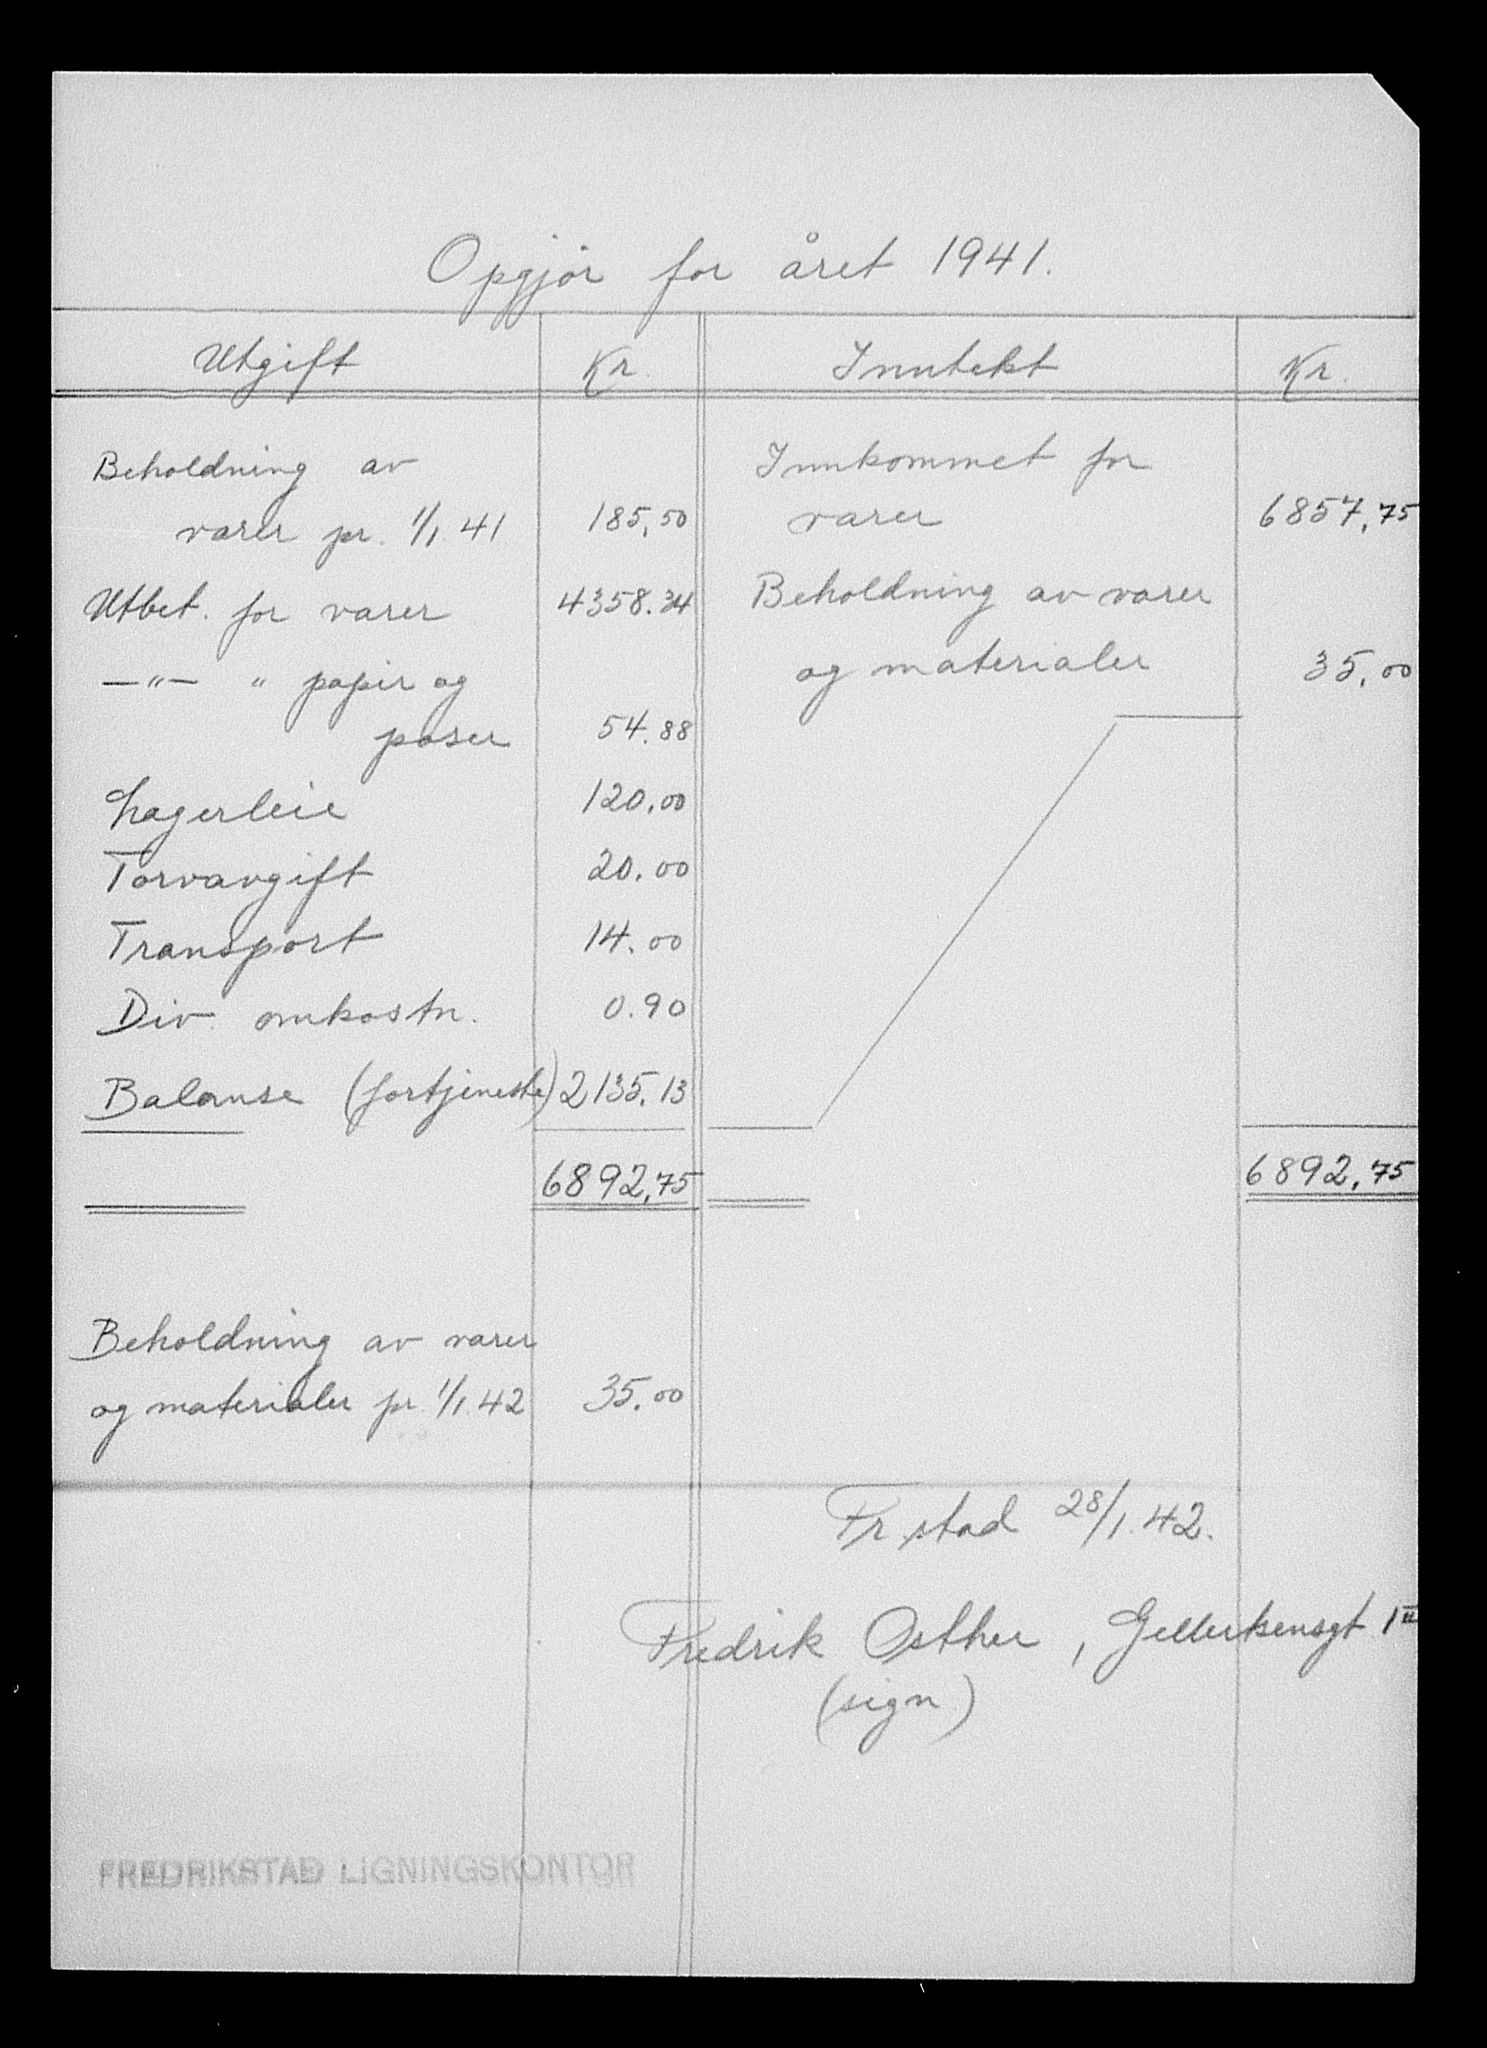 Opgjør for året 1941.
Utgift Kr. Inntekt Kr.
Beholdning av
varer pr. 1/1 41 185,50
Utbet. for varer 4358.34
—"— " papir og
poser 54.88
Lagerleie 120,00
Torvavgift 20.00
Transport 14.00
Div. omkostn. 0.90
Balanse (fortjeneste) 2135.13
6892,75
Innkommet for
varer 6857,75
Beholdning av varer
og materialer 35,00
6892,75
Beholdning av varer
og materialer pr. 1/1 42 35,00
Fr.stad 28/1.42.
Fredrik Osther, Gellertsensgt 1 II
(sign.)
FREDRIKSTAD LIGNINGSKONTOR